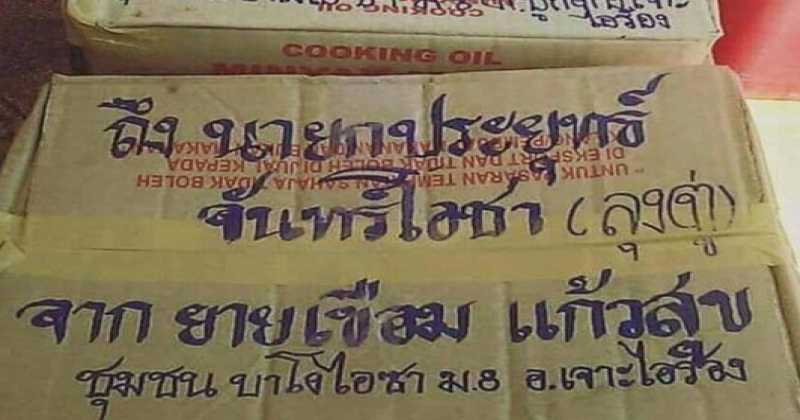 ไอร้อง
COOKING OIL
ถึง นายกประยุทธ์
จันทร์โอชา (ลุงตู่)
"UNTUK PASARAN TEMPATAN SAHAJA TIDAK BOLEH
DI EKSPORT DAN TIDAK BOLEH DIJUAL KEPADA
จาก ยายเขือม แก้วสุข
ชุมชน บาโงไอซา ม.8 อ.เจาะไอร้อง